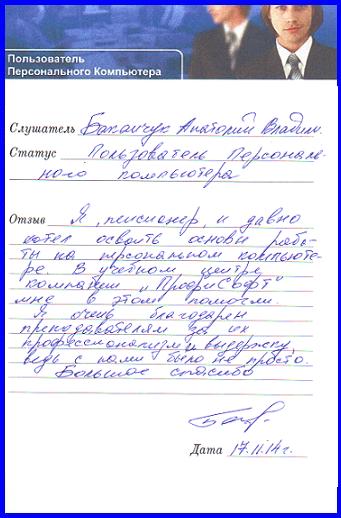 Пользователь
Персонального Компьютера
Слушатель Баканчук Анатолий Владим.
Статус Пользователь Персональ-
ного компьютера
Отзыв Я, пенсионер, и давно
хотел освоить основы рабо-
ты на персональном компьюте-
ре. В учебном центре
компании "ПрофиСофт"
мне в этом помогли.
Я очень благодарен
преподавателям за их
профессионализм и выдержку,
ведь с нами было не просто.
Большое спасибо
Дата 17.11.14г.